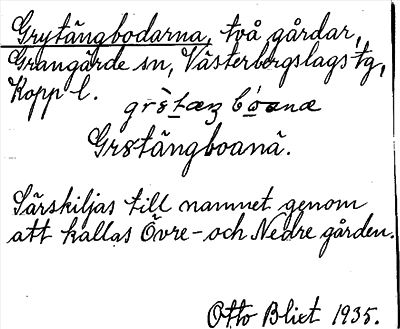 Grytängbodarna, två gårdar,
Grangärde sn, Västerbergslags tg,
Kopp l.
Grstängboanä.
Särskiljas till namnet genom
att kallas Övre- och Nedre gården.
Otto Blixt 1935.